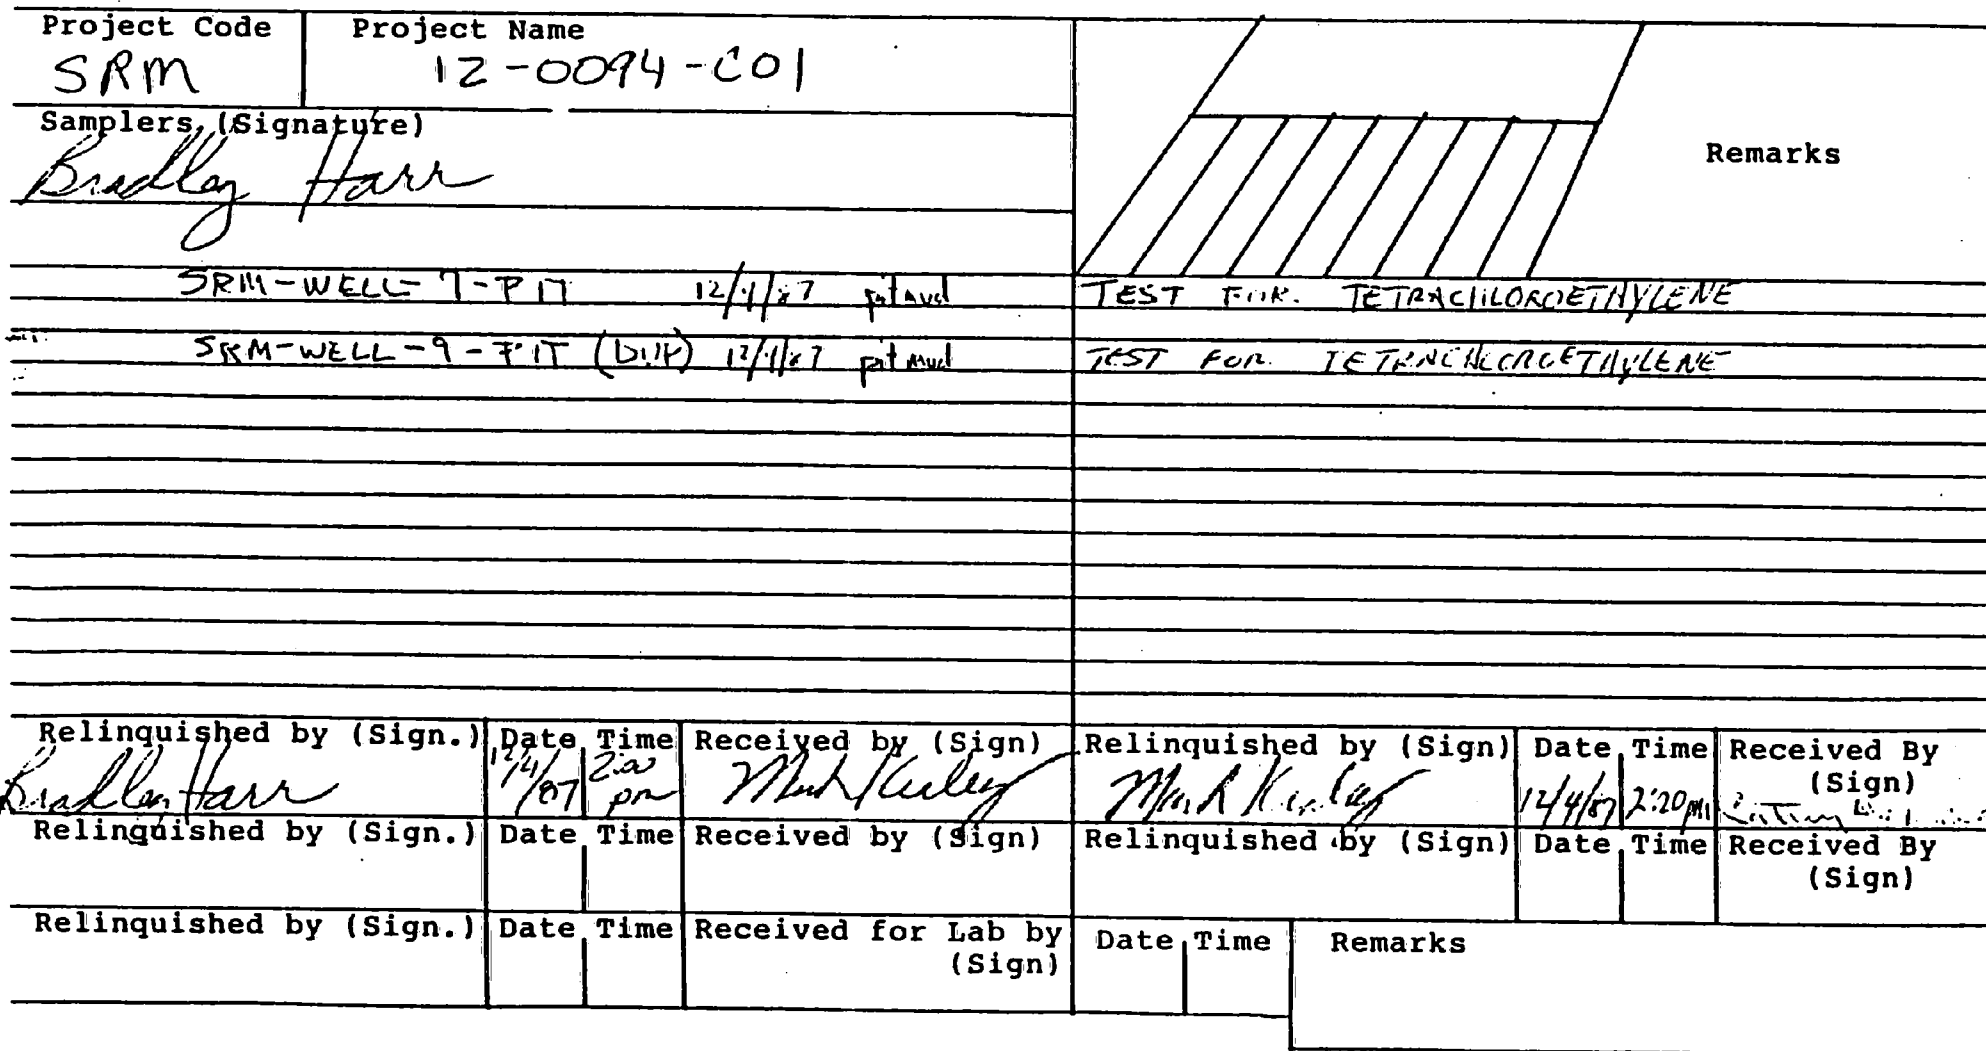 Project Code
Project Name
SRM
12-0094-C01
Samplers (Signature)
Bradley Harr
Remarks
SRM-WELL-7-PIT 12/4/87 pit mud TEST FOR TETRACHLOROETHYLENE
SRM-WELL-9-PIT (DUP) 12/4/87 pit mud TEST FOR TETRACHLOROETHYLENE
Relinquished by (Sign.) Date Time Received by (Sign) Relinquished by (Sign) Date Time Received By (Sign)
Bradley Harr 12/4/87 2:00 pm Mark 12/4/87 2:20 pm
Relinquished by (Sign.) Date Time Received by (Sign) Relinquished by (Sign) Date Time Received By (Sign)
Relinquished by (Sign.) Date Time Received for Lab by (Sign) Date Time Remarks